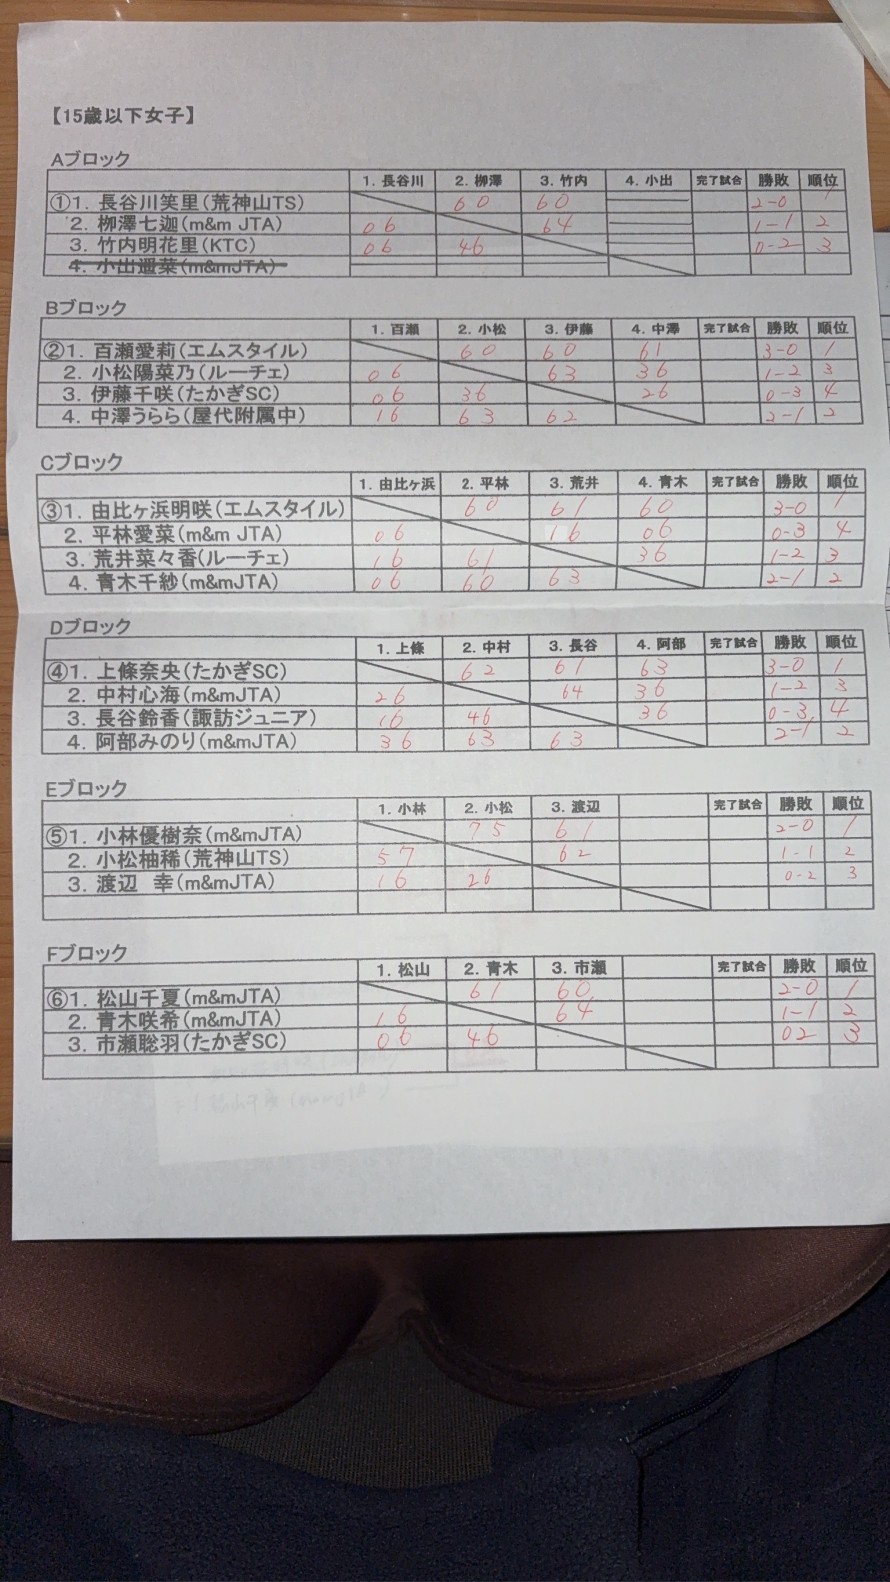 【15歳以下女子】
Aブロック
1. 長谷川 2. 柳澤 3. 竹内 4. 小出 完了試合 勝敗 順位
①1. 長谷川笑里(荒神山TS) 60 60 2-0 1
2. 柳澤七迦(m&m JTA) 06 64 1-1 2
3. 竹内明花里(KTC) 06 46 0-2 3
4. 小出遥菜(m&mJTA)
Bブロック
1. 百瀬 2. 小松 3. 伊藤 4. 中澤 完了試合 勝敗 順位
②1. 百瀬愛莉(エムスタイル) 60 60 61 3-0 1
2. 小松陽菜乃(ルーチェ) 06 63 36 1-2 3
3. 伊藤千咲(たかぎSC) 06 36 26 0-3 4
4. 中澤うらら(屋代附属中) 16 63 62 2-1 2
Cブロック
1. 由比ヶ浜 2. 平林 3. 荒井 4. 青木 完了試合 勝敗 順位
③1. 由比ヶ浜明咲(エムスタイル) 60 61 60 3-0 1
2. 平林愛菜(m&m JTA) 06 16 06 0-3 4
3. 荒井菜々香(ルーチェ) 16 61 36 1-2 3
4. 青木千紗(m&mJTA) 06 60 63 2-1 2
Dブロック
1. 上條 2. 中村 3. 長谷 4. 阿部 完了試合 勝敗 順位
④1. 上條奈央(たかぎSC) 62 61 63 3-0 1
2. 中村心海(m&mJTA) 26 64 36 1-2 3
3. 長谷鈴香(諏訪ジュニア) 16 46 36 0-3 4
4. 阿部みのり(m&mJTA) 36 63 63 2-1 2
Eブロック
1. 小林 2. 小松 3. 渡辺 完了試合 勝敗 順位
⑤1. 小林優樹奈(m&mJTA) 75 61 2-0 1
2. 小松柚稀(荒神山TS) 57 62 1-1 2
3. 渡辺 幸(m&mJTA) 16 26 0-2 3
Fブロック
1. 松山 2. 青木 3. 市瀬 完了試合 勝敗 順位
⑥1. 松山千夏(m&mJTA) 61 60 2-0 1
2. 青木咲希(m&mJTA) 16 64 1-1 2
3. 市瀬聡羽(たかぎSC) 06 46 02 3